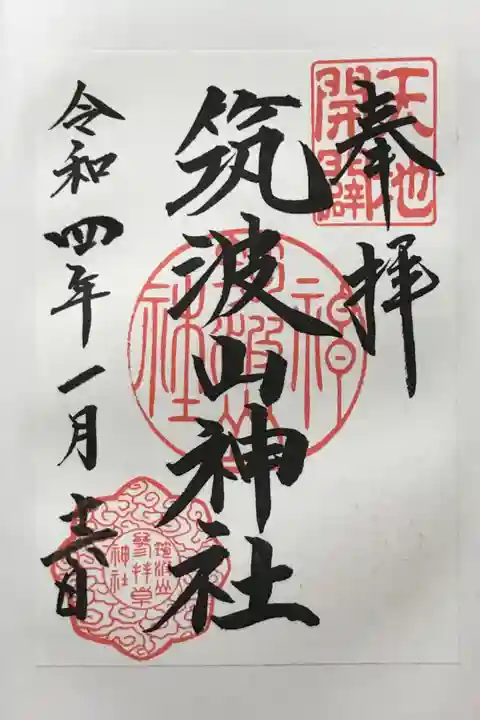 奉拝
天地
開闢
筑波山神社
筑波山神社
令和四年一月十六日
筑波山
神社